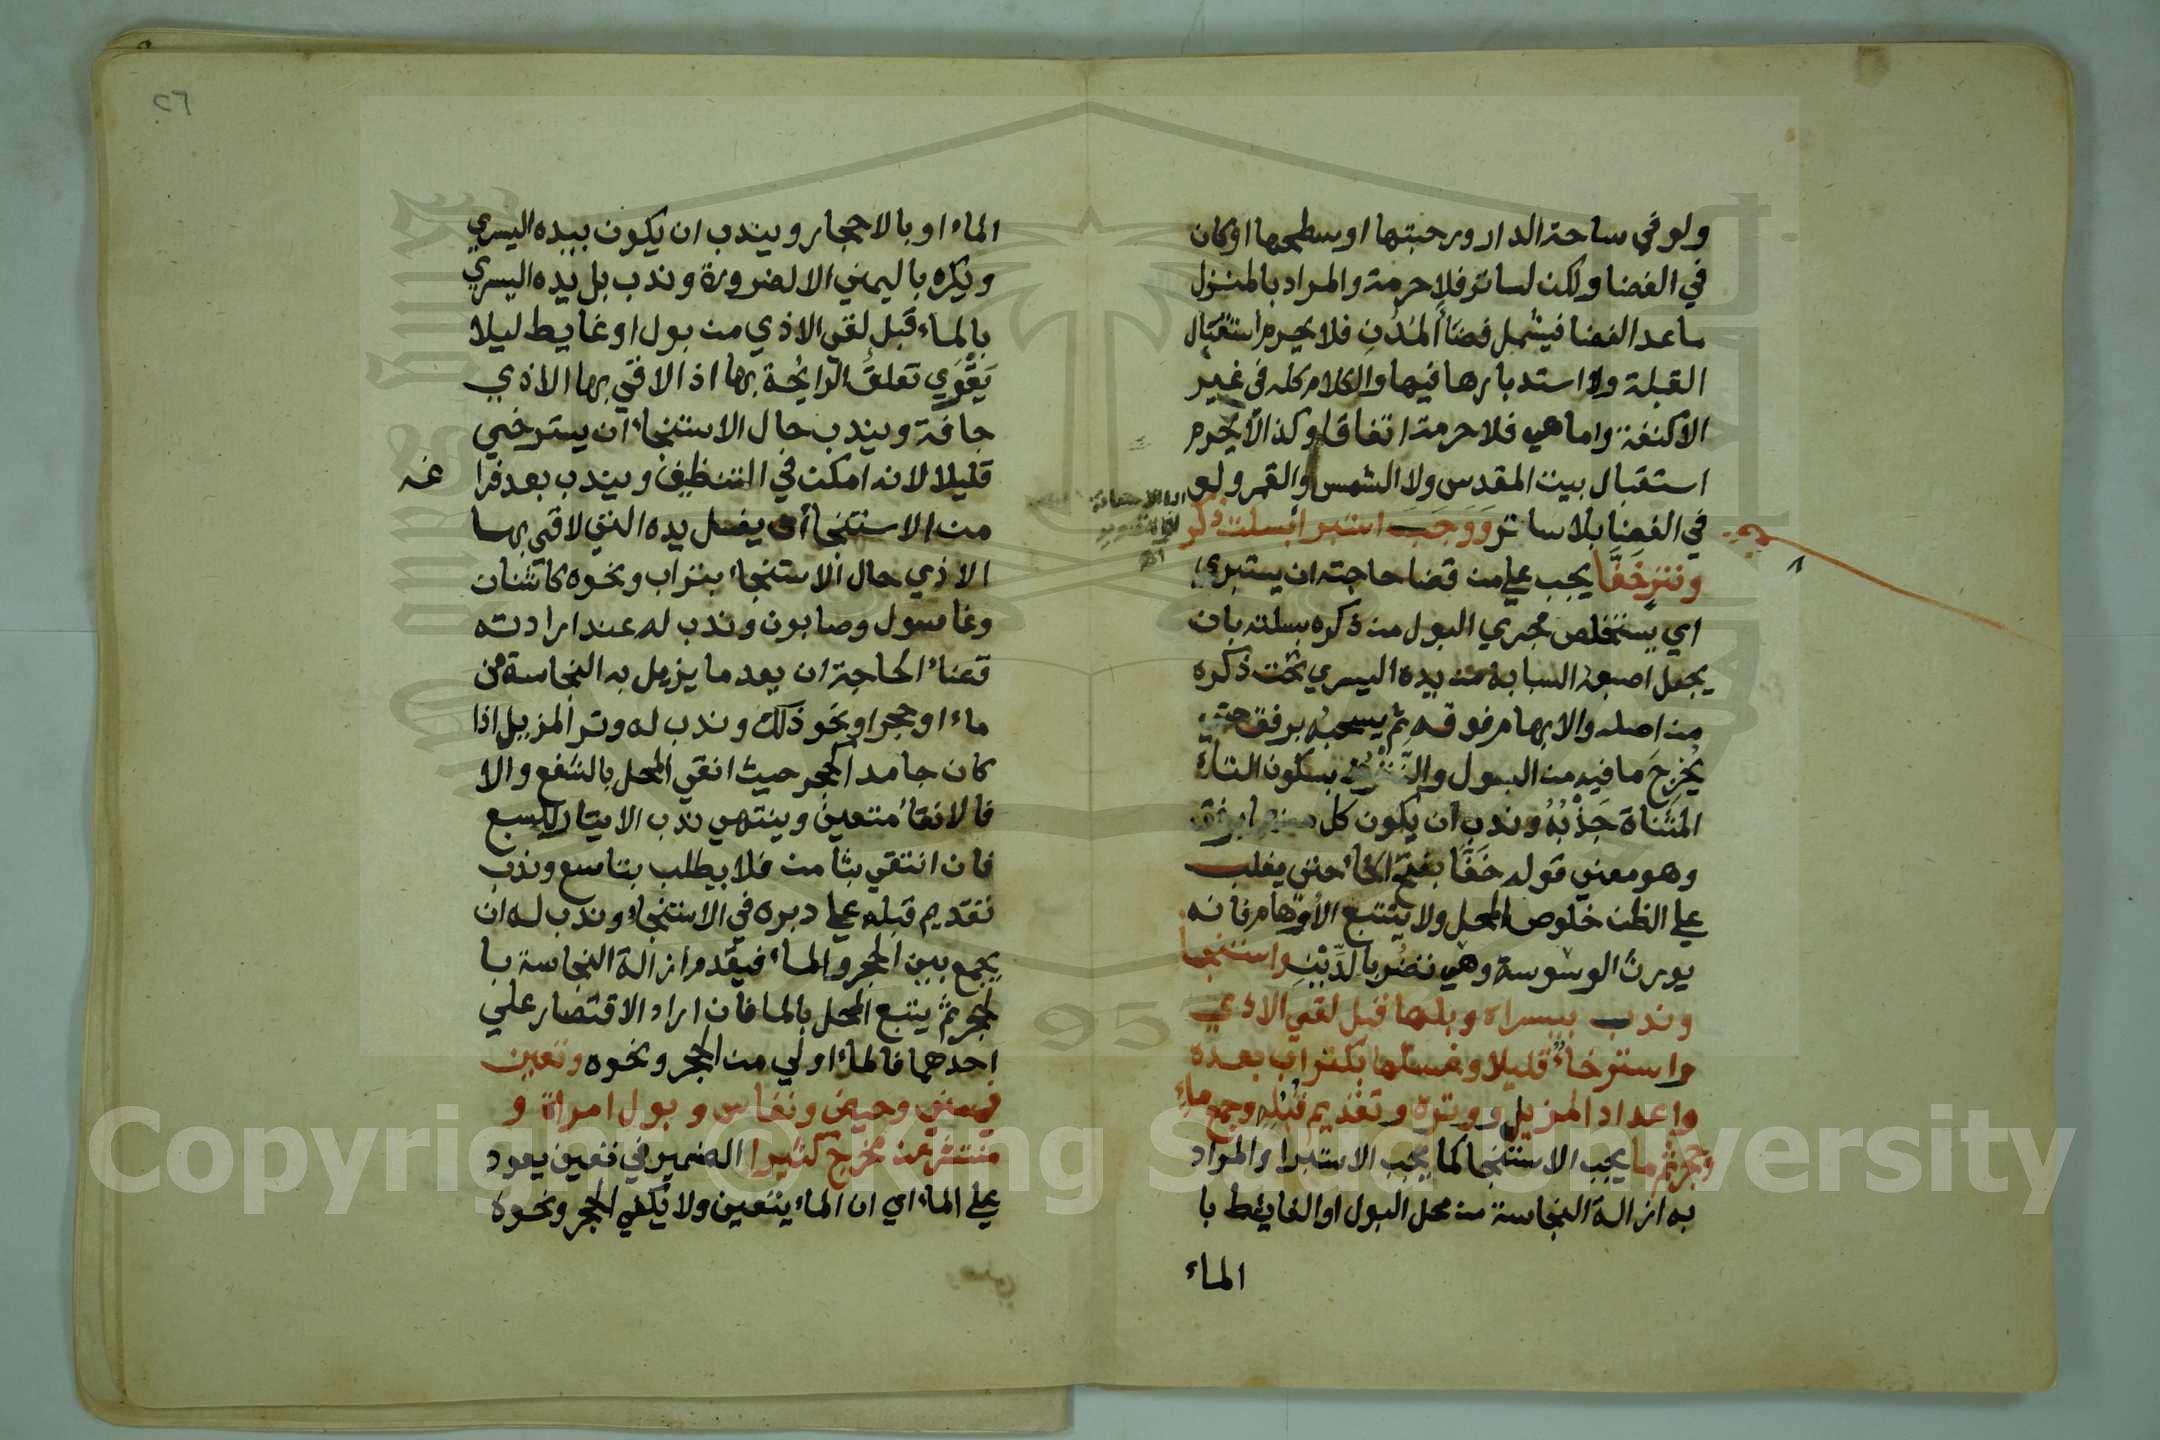 ولو في ساحة الدار ورحبتها او سطحها او كان
في الفضا ولكن لساتر فلا حرمة والمراد بالمنزل
ماعدا الفضا فيشمل فضاء المدن فلا يحرم استقبال
القبلة ولا استدبارها فيها والكلام كله في غير
الاكنفة واما هي فلا حرمة اتفاقا وكذا لا يحرم
استقبال بيت المقدس ولا الشمس والقمر ولو
في الفضا بلا ساتر ووجب استبرا بسلت ذكر
ونتر خفا يجب على من قضا حاجته ان يستبري
اي يستخلص مجري البول من ذكره بسلته بان
يجعل اصبعه السبابة من يده اليسري تحت ذكره
من اصله والابهام فوقه ثم يسحبه برفق حتي
يخرج ما فيه من البول والنتر بسكون التاء
المثناة جذبه وندب ان يكون كل منهما برفق
وهو معني قوله خفا بفتح الخاء حتي يغلب
علي الظن خلوص المحل ولا يتتبع الاوهام فانه
يورث الوسوسة وهي تضر بالدين واستنجا
وندب بيسراه وبلها قبل لقي الاذي
واسترخاء قليلا وغسلها بكتراب بعده
واعداد المزيل ووتره وتقديم قبله وجمع ماء
وحجر ثم ما يجب الاستنجا كما يجب الاستبرا والمراد
به ازالة النجاسة من محل البول او الغايط با
الماء
الماء او بالاحجار ويندب ان يكون بيده اليسري
ويكره باليمني الا لضرورة وندب بل يده اليسري
بالماء قبل لقي الاذي من بول او غايط ليلا
يقوي تعلق الرايحة بها اذا لاقي بها الاذي
جافة ويندب حال الاستنجاء ان يسترخي
قليلا لانه امكن في التنظيف ويندب بعد فرا
غه
من الاستنجا ان يغسل يده التي لاقي بها
الاذي حال الاستنجاء بتراب ونحوه كاشنان
وغاسول وصابون وندب له عند ارادته
قضاء الحاجة ان يعد ما يزيل به النجاسة من
ماء او حجر او نحو ذلك وندب له وتر المزيل اذا
كان جامد الحجر حيث انقي المحل بالشفع والا
فالانقاء متعين وينتهي ندب الايتار للسبع
فان انتقي بثامن فلا يطلب بتاسع وندب
تقديم قبله علي دبره في الاستنجاء وندب له ان
يجمع بين الحجر والماء فيقدم ازالة النجاسة با
لحجر ثم يتبع المحل بالما فان اراد الاقتصار علي
احدهما فالماء اولي من الحجر ونحوه وتعين
في مني وحيض ونفاس وبول امراة و
منتشر عن مخرج كثيرا الضمير في تعين يعود
علي الماء اي ان الماء يتعين ولا يكفي الحجر ونحوه
٢٦